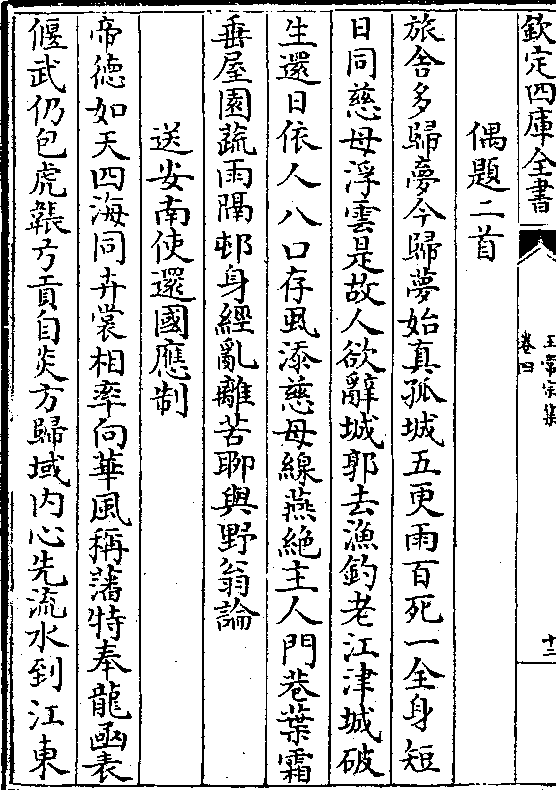 欽定四庫全書
王常宗集
卷四
十二
偶題二首
旅舍多歸夢今歸夢始真孤城五更雨百死一全身短
日同慈母浮雲是故人欲辭城郭去漁釣老江津城破
生還日依人八口存虱添慈母線燕絶主人門巷葉霜
垂屋園蔬雨隔邨身經亂離苦聊與野翁論
送安南使還國應制
帝德如天四海同卉裳相率向華風稱藩特奉龍函表
偃武仍包虎韔弓貢自炎方歸域内心先流水到江東